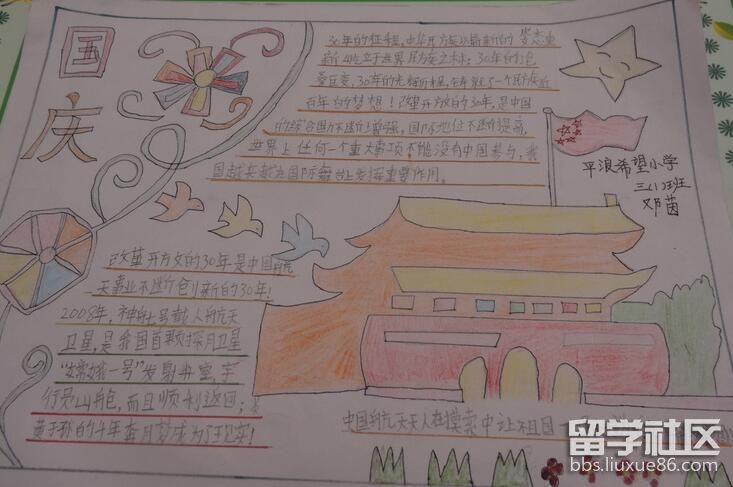 国
庆
30年的征程,中华民族以崭新的姿态重
新屹立于世界民族之林;30年的
变巨变,30年的光辉历程,铸就了一个民族近
百年的梦想!改革开放的30年,是中国
的综合国力不断上增强,国际地位不断提高,
世界上任何一个重大事项不能没有中国参与,我
国越来越在国际舞台上发挥重要作用。
平浪希望小学
三(1)班
邓茵
改革开放的30年是中国航
天事业不断创新的30年!
2008年,神舟号载人航天
卫星,是我国首颗探月卫星
“嫦娥一号”发射升空,
行,而且顺利返回;
黄子孙的千年奔月梦成为了现实!
中国航天人在摸索中让祖国
留学社区
bbs.liuxue86.com